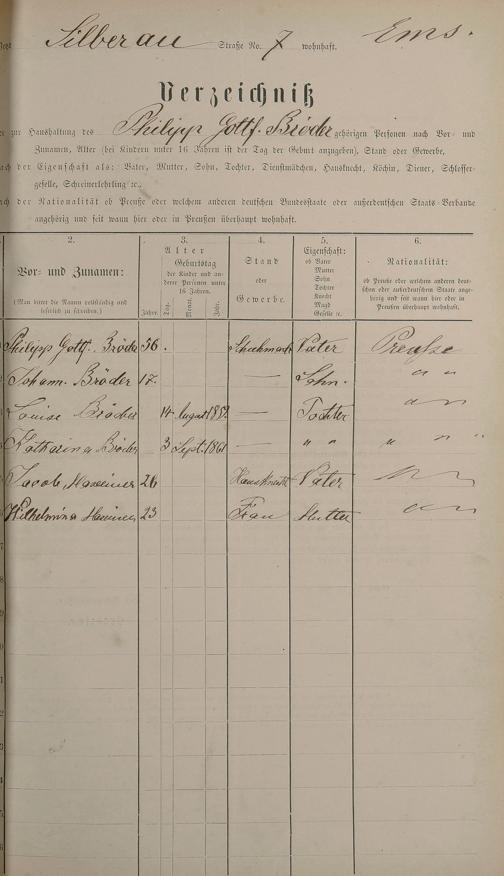 Silberau Straße No. 7 wohnhaft. Ems.
Verzeichniß
zur Haushaltung des Philipp Gottf. Bröder gehörigen Personen nach Vor- und
Zunamen, Alter (bei Kindern unter 16 Jahren ist der Tag der Geburt anzugeben), Stand oder Gewerbe,
der Eigenschaft als: Vater, Mutter, Sohn, Tochter, Dienstmädchen, Hausknecht, Köchin, Diener, Schlosser-
geselle, Schreinerlehrling ꝛc.,
der Nationalität ob Preuße oder welchem anderen deutschen Bundesstaate oder außerdeutschen Staats-Verbande
angehörig und seit wann hier oder in Preußen überhaupt wohnhaft.
2. 3. 4. 5. 6.
Vor- und Zunamen:
(Man bittet die Namen vollständig und
leserlich zu schreiben.)
Alter
Geburtstag
der Kinder und an-
derer Personen unter
16 Jahren.
Jahre. Tag. Monat. Jahr.
Stand
oder
Gewerbe.
Eigenschaft:
ob Vater
Mutter
Sohn
Tochter
Knecht
Magd
Geselle ꝛc.
Nationalität:
ob Preuße oder welchem anderen deut-
schen oder außerdeutschen Staate ange-
hörig und seit wann hier oder in
Preußen überhaupt wohnhaft.
Philipp Gottf. Bröder 56. Vater Preuße
Johann Bröder 17. — Sohn. " "
Louise Bröder 14 August — Tochter " "
Katharina Bröder 3 Sept. 1861 — " " " " "
Jacob 26 Hausknecht Vater " "
Wilhelmina 23 Frau Mutter " "